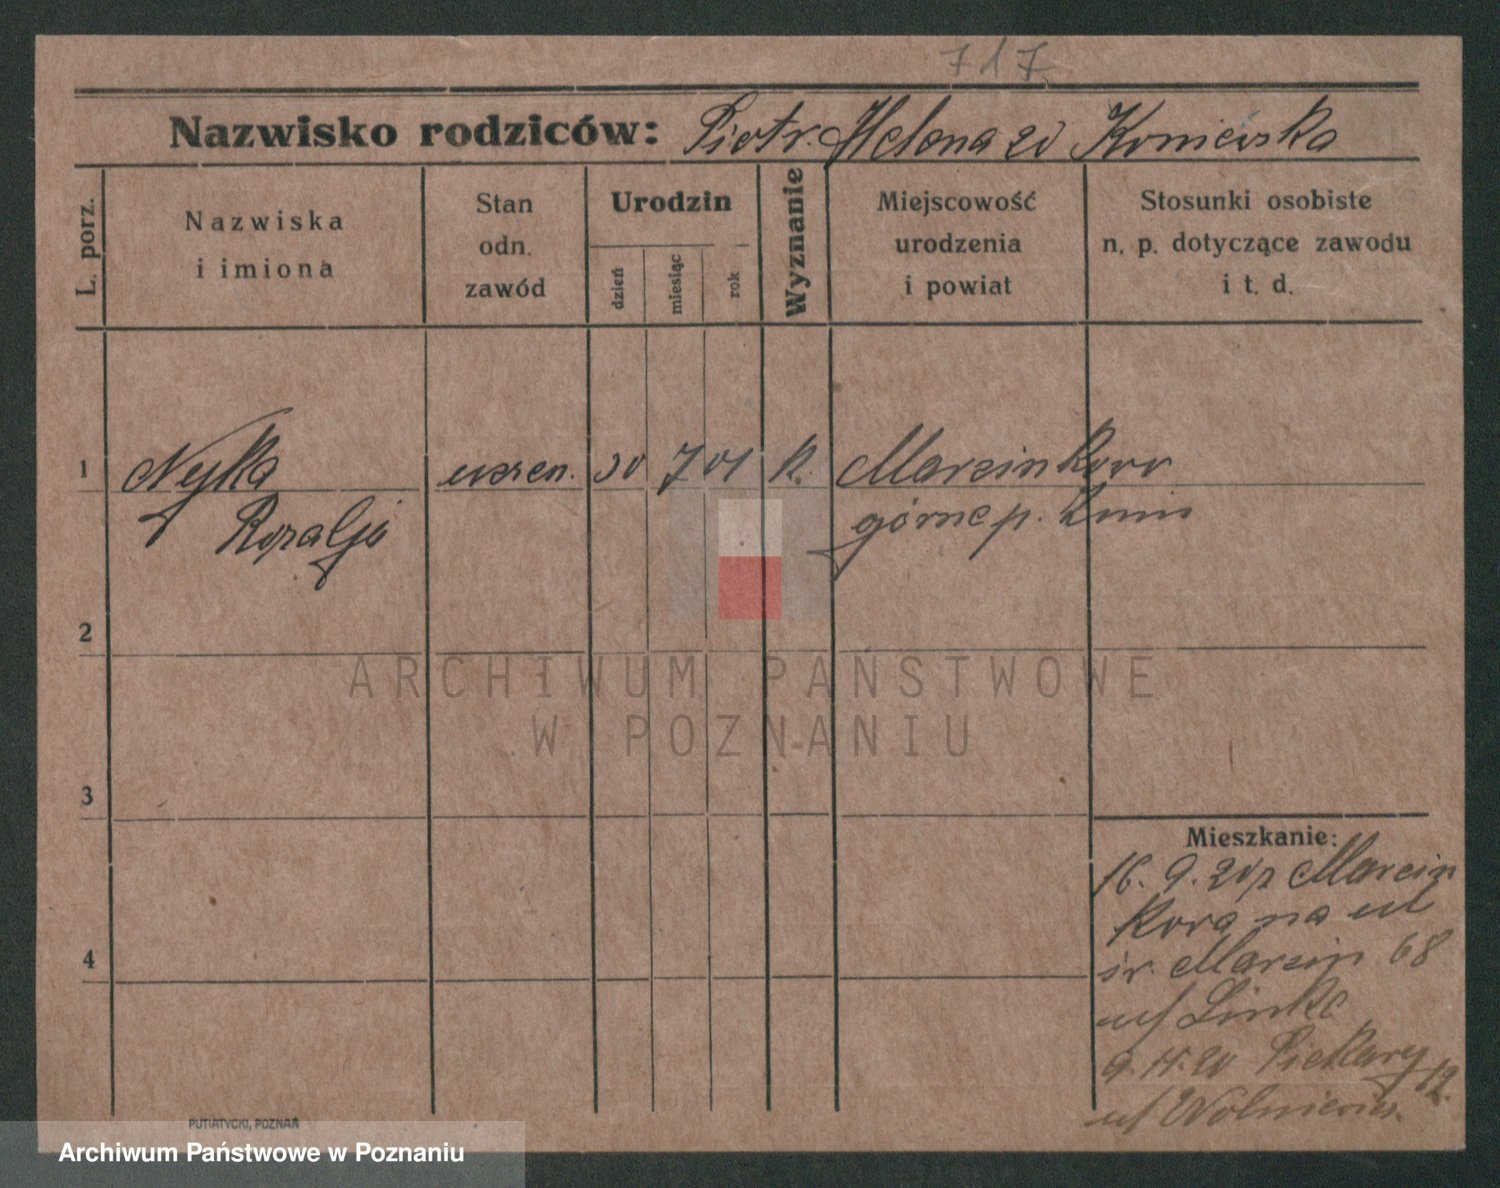 717
Nazwisko rodziców: Piotr. Helena zd Koniewska
L. porz.
Nazwiska
i imiona
Stan
odn.
zawód
Urodzin
dzień
miesiąc
rok
Wyznanie
Miejscowość
urodzenia
i powiat
Stosunki osobiste
n. p. dotyczące zawodu
i t. d.
1 Nyka uczen. 30 7 01 k. Marcinkowo
Rozalja górne p. Znin
2
ARCHIWUM PAŃSTWOWE
W POZNANIU
3
Mieszkanie:
16. 9. 20 z Marcin
kowa na ul
św. Marcin 68
u/ Linke
4
9. 11. 20 Piekary 12.
u/
PUTIATYCKI, POZNAŃ
Archiwum Państwowe w Poznaniu